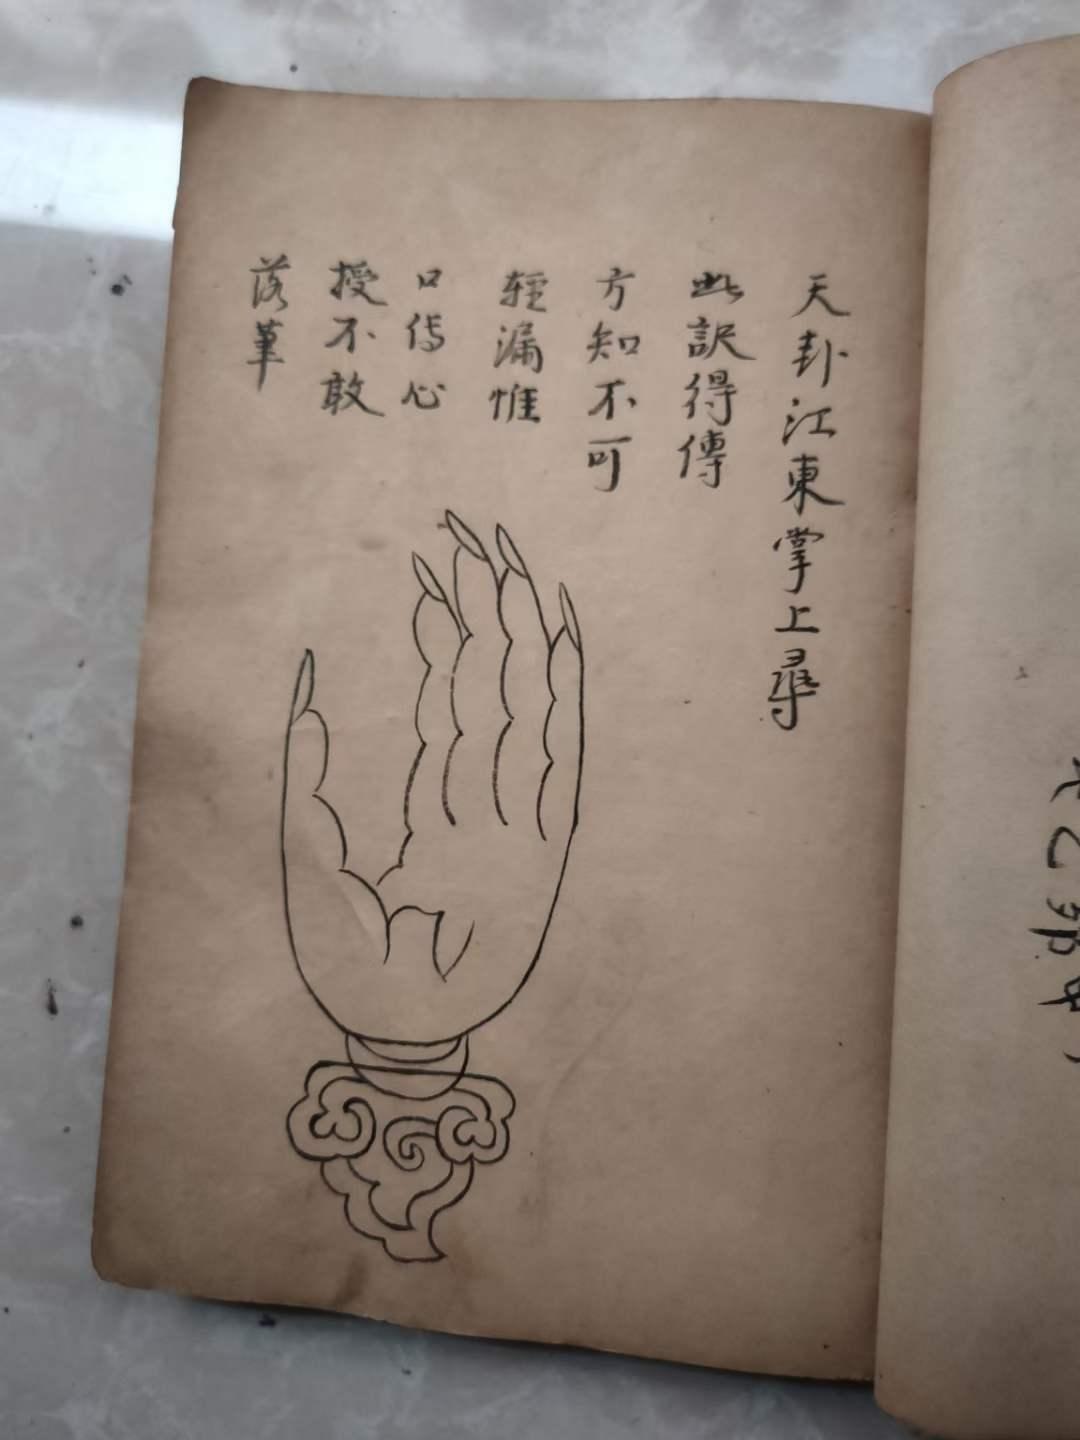 天卦江東掌上尋
此訣得傳
方知不可
輕漏惟
口傳心
授不敢
落筆